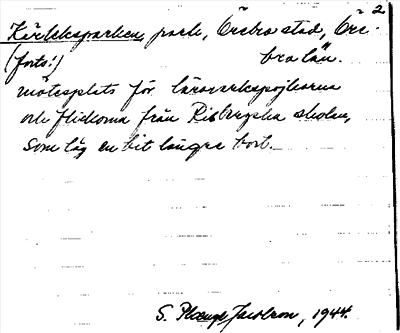 2
Kärleksparken, park, Örebro stad, Öre-
(forts!) bro län.
mötesplats för läroverkspojkarna
och flickorna från Risbergska skolan,
som låg en bit längre bort.
S. Jacobson, 1944.